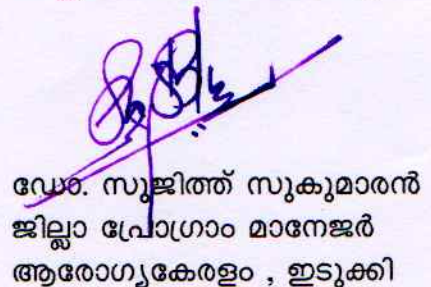 ഡോ. സുജിത്ത് സുകുമാരൻ
ജില്ലാ പ്രോഗ്രാം മാനേജർ
ആരോഗ്യകേരളം , ഇടുക്കി